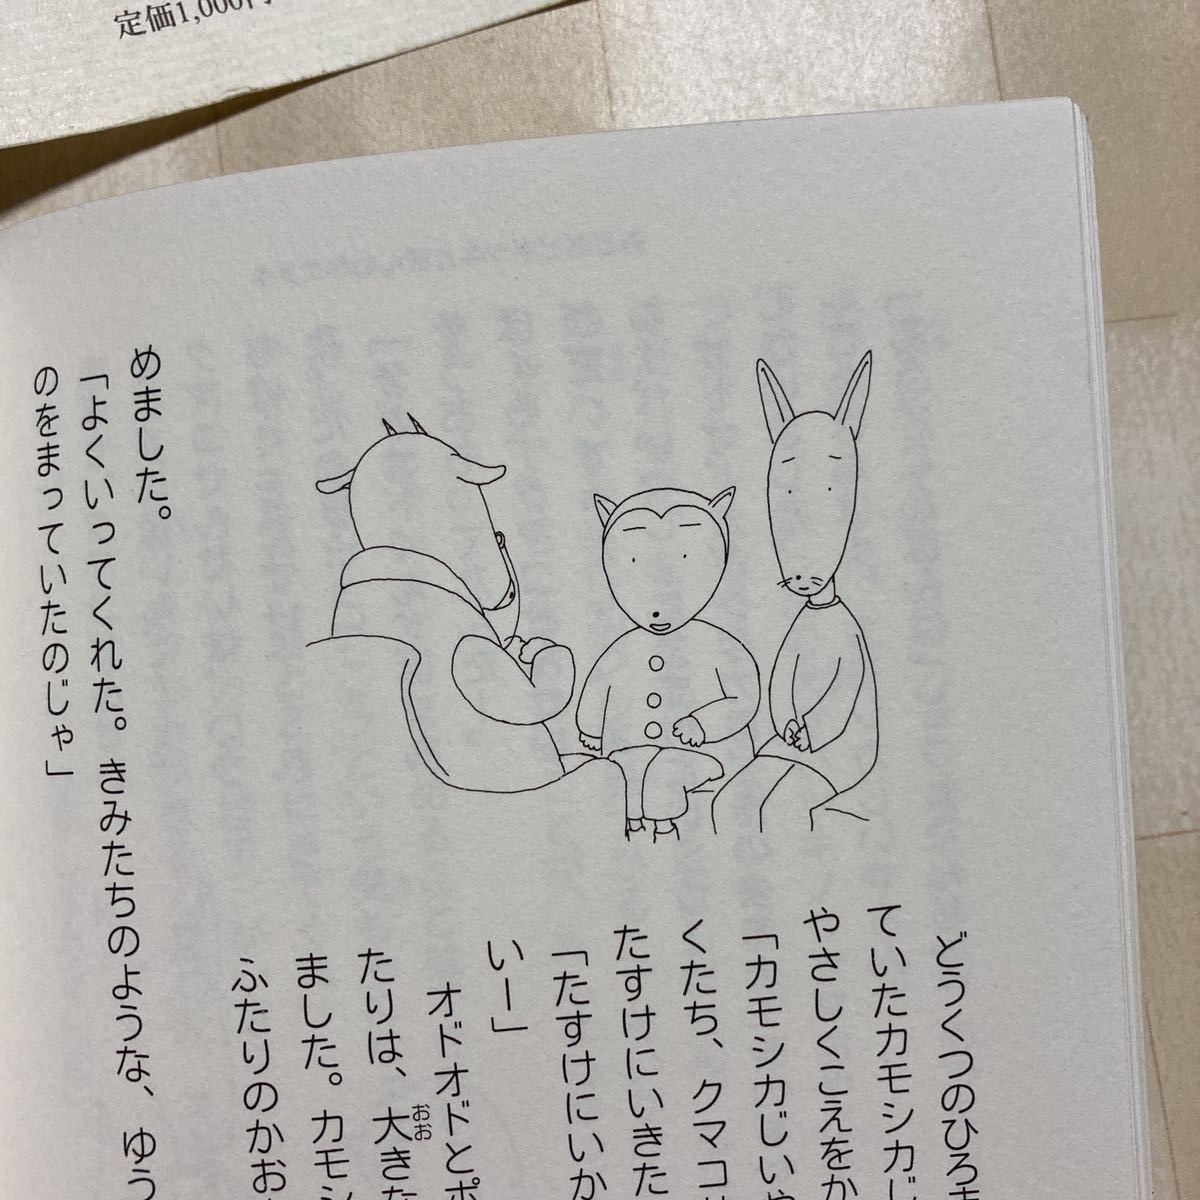 定価1,000円
どうくつのひろ
ていたカモシカじ
やさしくこえをか
「カモシカじいや
くたち、クマコ
たすけにいきた
「たすけにいか
いー」
オドオドとポ
たりは、大きな
おお
ました。カモシ
ふたりのかお
めました。
「よくいってくれた。きみたちのような、ゆう
のをまっていたのじゃ」